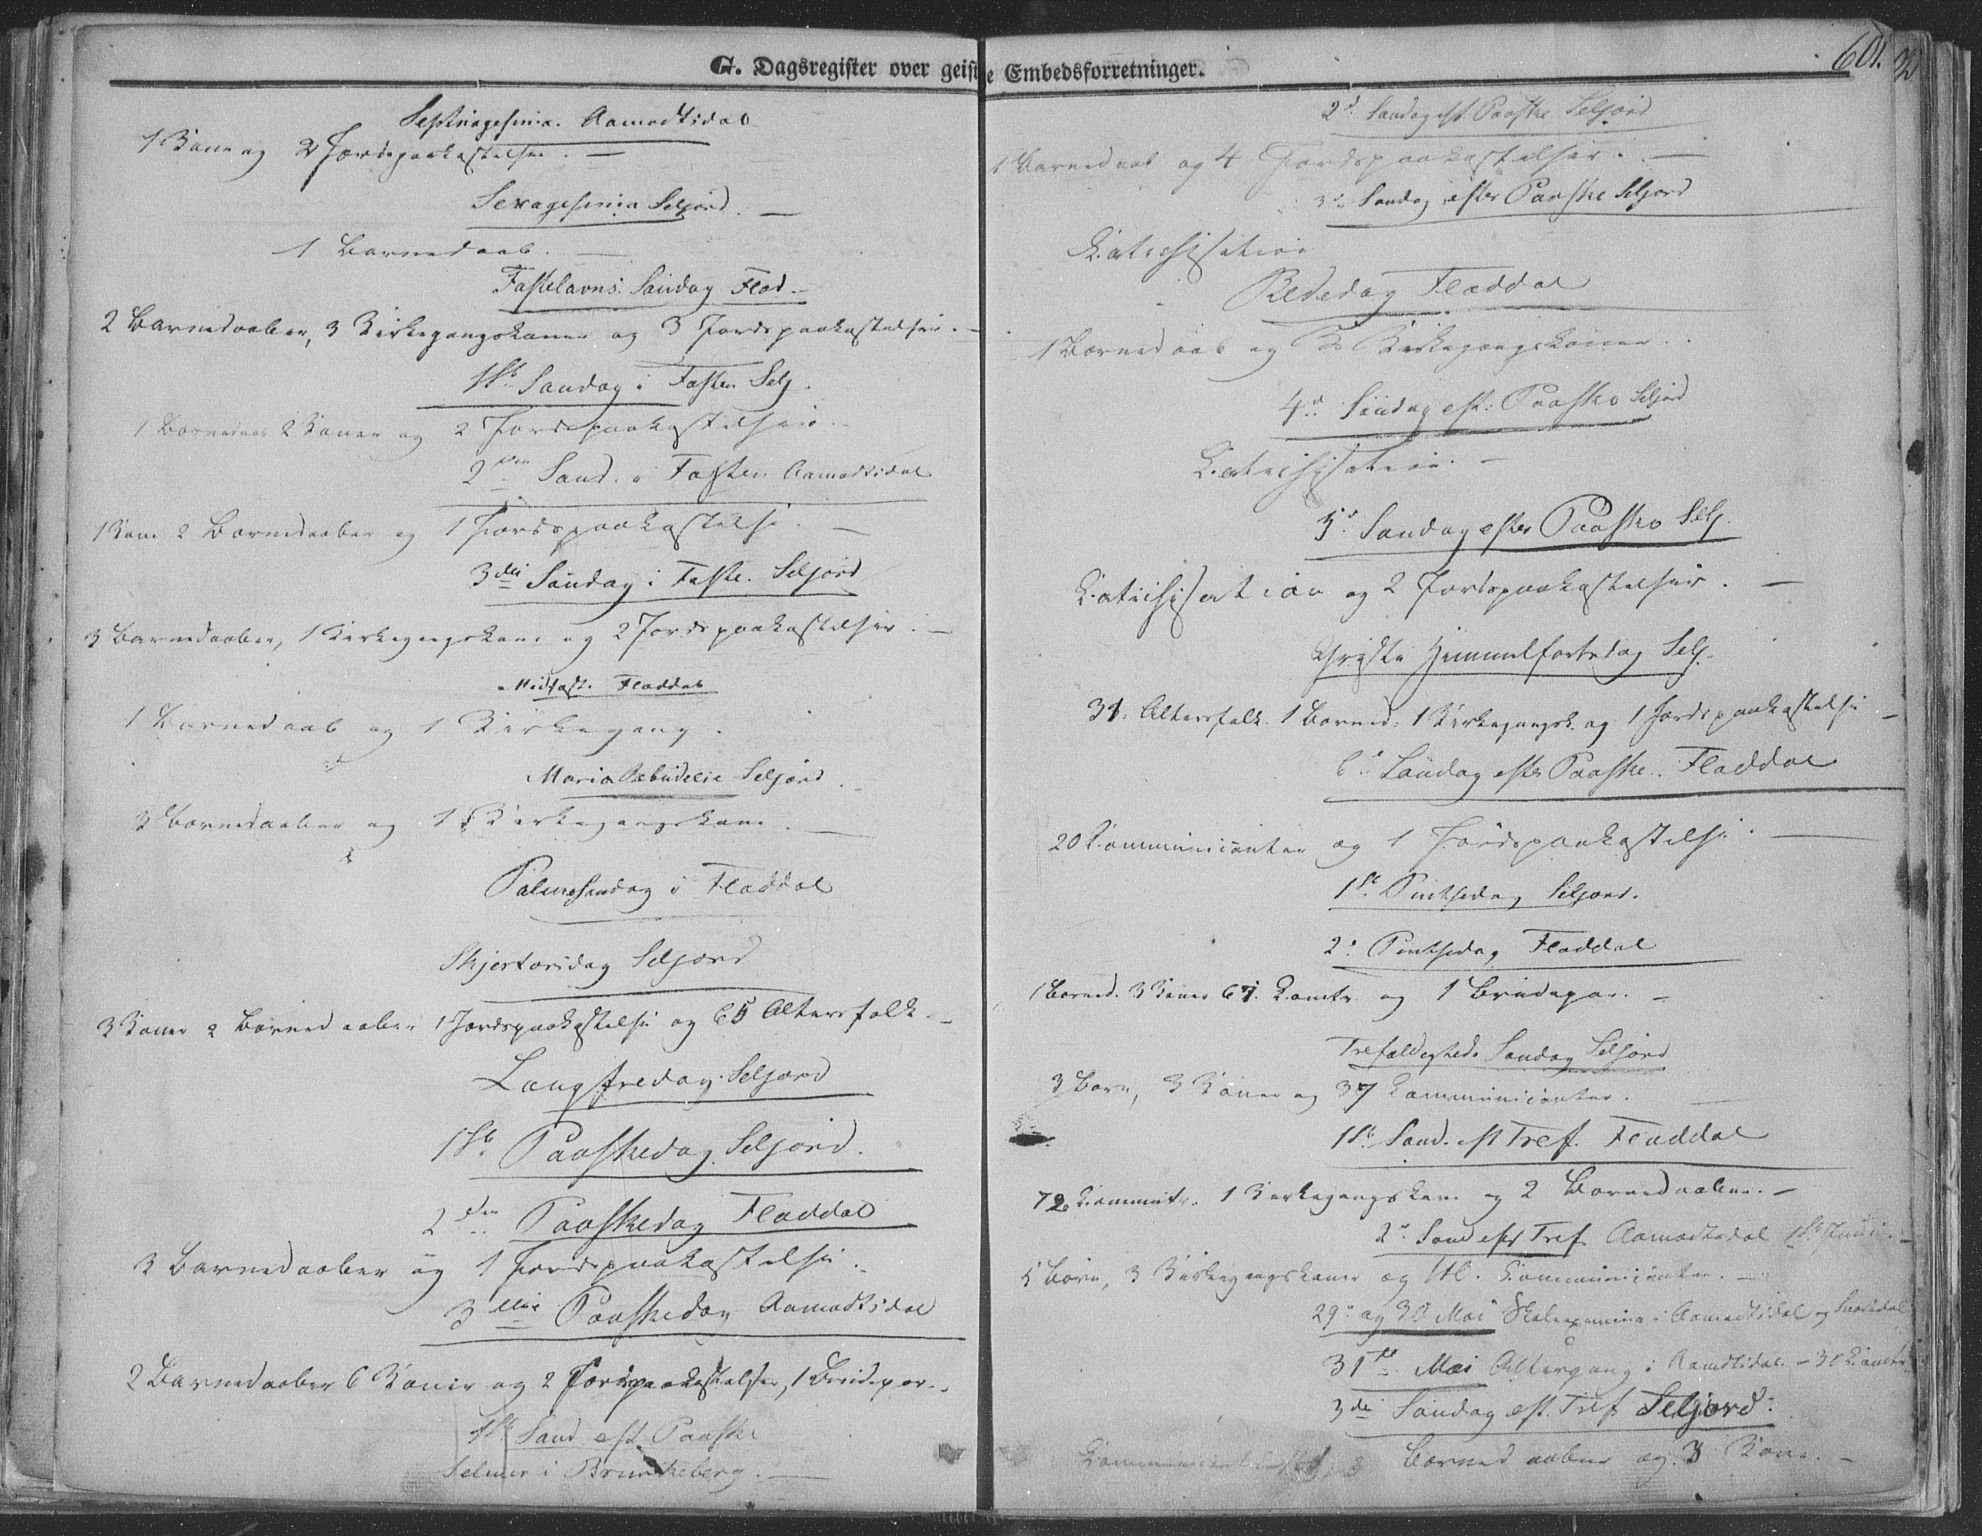 G. Dagsregister over geistlige Embedsforretninger.
Septuagesima. Aamodtsdal
1 Kone og 2 Jordspaakastelser. —
Sexagesima Seljord. —
1 Barnedaab. —
Fastelavns Søndag Flad. —
2 Barnedaaber, 3 Kirkegangskoner og 3 Jordspaakastelser. —
1ste Søndag i Fasten Selj.
1 Barnedaab 2 Koner og 2 Jordspaakastelser. —
2den Sønd. i Fasten Aamodtsdal
1 Kone 2 Barnedaaber og 1 Jordspaakastelse. —
3die Søndag i Faste. Seljord
3 Barnedaaber, 1 Kirkegangskone og 2 Jordspaakastelser. —
Midfaste Fladdal
1 Barnedaab og 1 Kirkegang.
Maria Bebudelse Seljord.
3 Barnedaaber og 1 Kirkegangskone. —
Palmesøndag i Fladdal
Skjertorsdag Seljord
3 Koner 2 Barnedaaber 1 Jordspaakastelse og 65 Altersfolk. —
Langfredag Seljord
1ste Paaskedag Seljord.
2den Paaskedag Fladdal
3 Barnedaaber og 1 Jordspaakastelse.
3die Paaskedag Aamodtsdal
2 Barnedaaber 6 Koner og 2 Jordspaakastelser, 1 Brudepar. —
1ste Sønd eft. Paaske
Selmer i Brunkeberg. —
601.
2d Søndag eft Paaske Seljord
1 Barnedaab og 4 Jordspaakastelser. —
3d Søndag efter Paaske Seljord
Catechisation
Bededag Fladdal
1 Barnedaab og 3 Kirkegangskoner.
4d Søndag eft: Paaske Seljord
Catechisation. —
5d Søndag efter Paaske Selj.
Catechisation og 2 Jordspaakastelser. —
Christi Himmelfartsdag Selj.
31. Altersfolk. 1 Barned: 1 Kirkegangsk. og 1 Jordspaakastelse —
6d Søndag efter Paaske. Fladdal
20 Communicanter og 1 Jordspaakastelse. —
1ste Pintsedag Seljord.
2d Pintsedag Fladdal
1 Barned. 3 Koner 67. Comtr. og 1 Brudepar. —
Trefoldigheds Søndag Seljord
3 Børn, 3 Koner og 37 Communicanter. —
1ste Sønd. eft Tref. Fladdal
72 Communtr. 1 Kirkegangskone og 2 Barnedaaber. —
2d Sønd efter Tref. Aamodtsdal 1ste Juni. —
5 Børn, 3 Kirkegangskoner og Communicanter. —
29d og 30d Mai Skoleexamina i Aamodtsdal og
31te Mai Altergang i Aamodtsdal. — 30 Comtr.
3die Søndag eft. Tref. Seljord.
Communicanter 3 Barnedaaber og 3 Kone. —